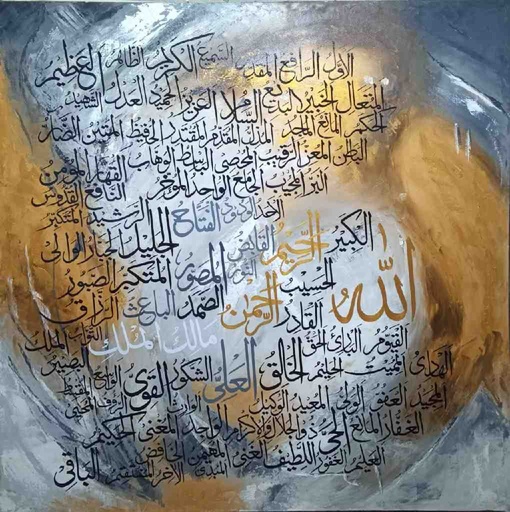 الأول الرافع المقدم السميع الكريم الظاهر العظيم
المتعال الخبير البديع السلام العزيز الحميد العدل الشهيد
الحكم المانع المجيد المذل المقدم المقتدر الحفيظ المتين الضار
الباطن المعز الرقيب المحصي الباسط الوهاب القهار المؤمن
البر المجيب الجامع الواحد المؤخر النافع القدوس
الأحد الودود الفتاح الجليل الرشيد المتكبر
الكبير الرحيم القابض النور المصور المتكبر الجبار الوالي
الله الحسيب الرحمن الصمد الباعث الصبور الرزاق
القادر مالك الملك التواب الملك
القيوم البارئ الحق
الهادي المميت الحليم الخالق العلي الشكور القوي الواسع البصير المقسط
المجيد العفو الولي المعيد الوكيل الوارث الرؤوف المحيي
الغفار المانع الحي ذو الجلال والإكرام الواجد المغني الحكيم
العليم الغفور اللطيف الغني المهيمن الخافض الباقي
المبدئ الآخر المنتقم